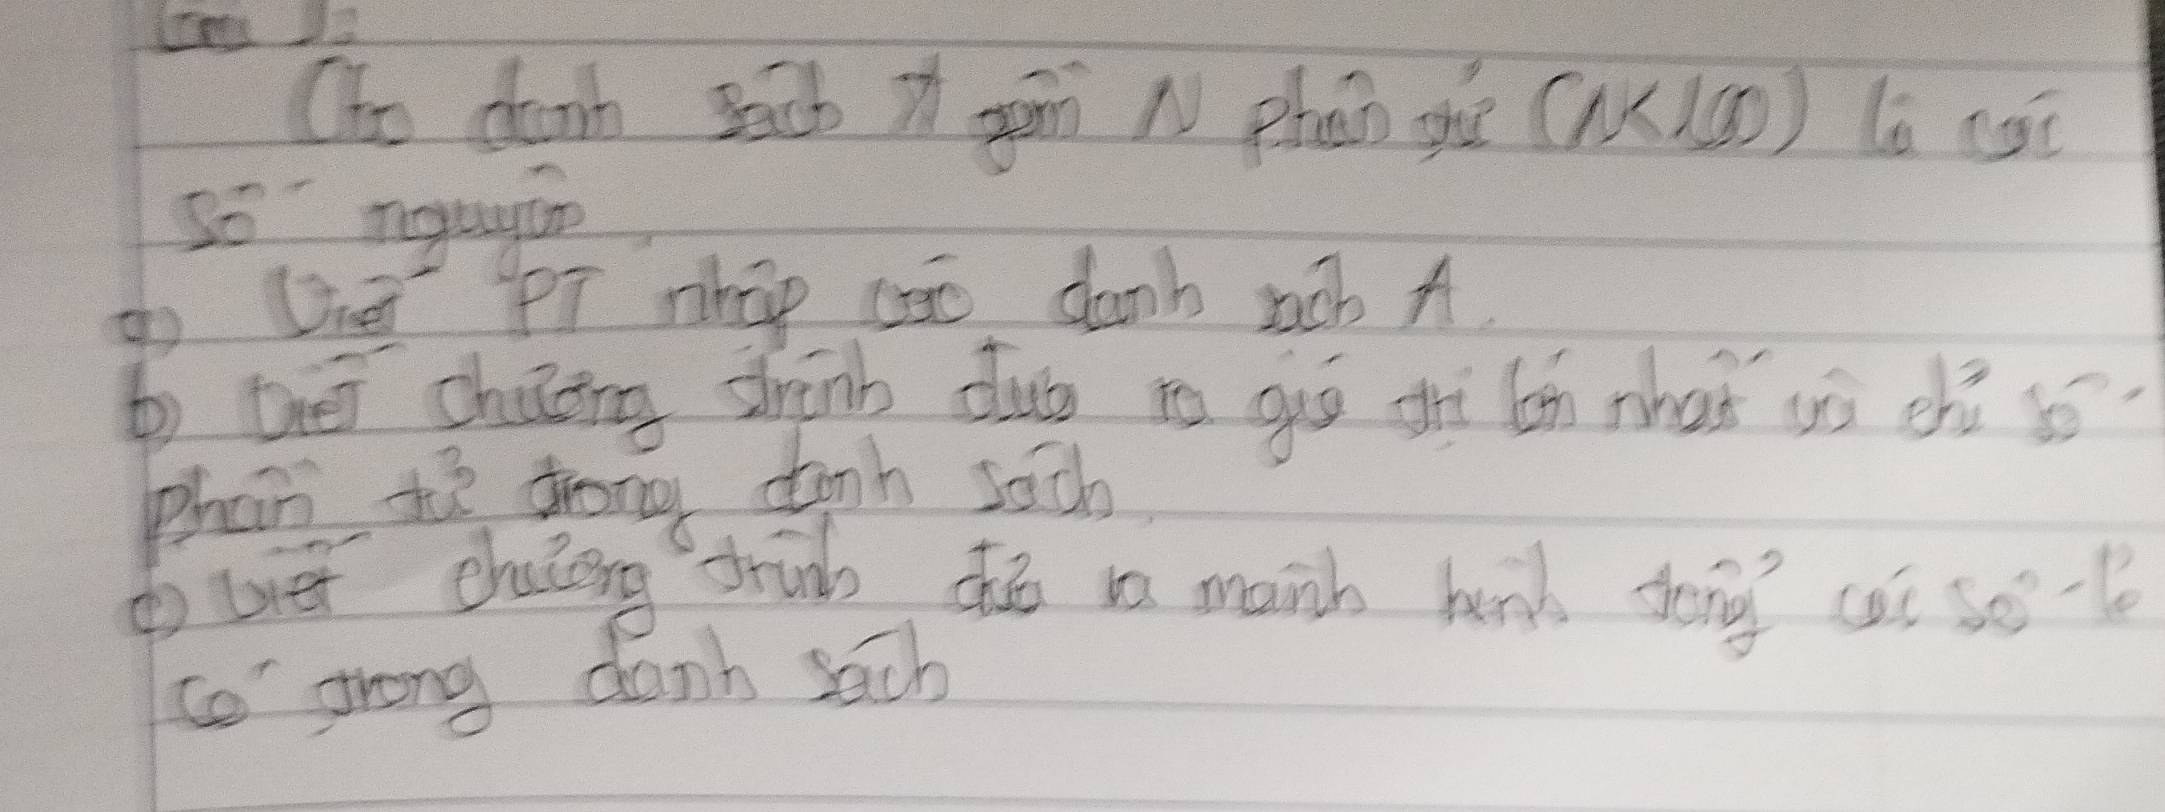 Câu 1:
Cho danh sách A gồm N phần tử (N<100) là các
số nguyên
a) Viết PT nhập các danh sách A.
b) Viết chương trình đưa ra giá trị lớn nhất và chỉ số
phần tử trong danh sách
c) viết chương trình đưa ra mành hình tổng các số lẻ
có trong danh sách